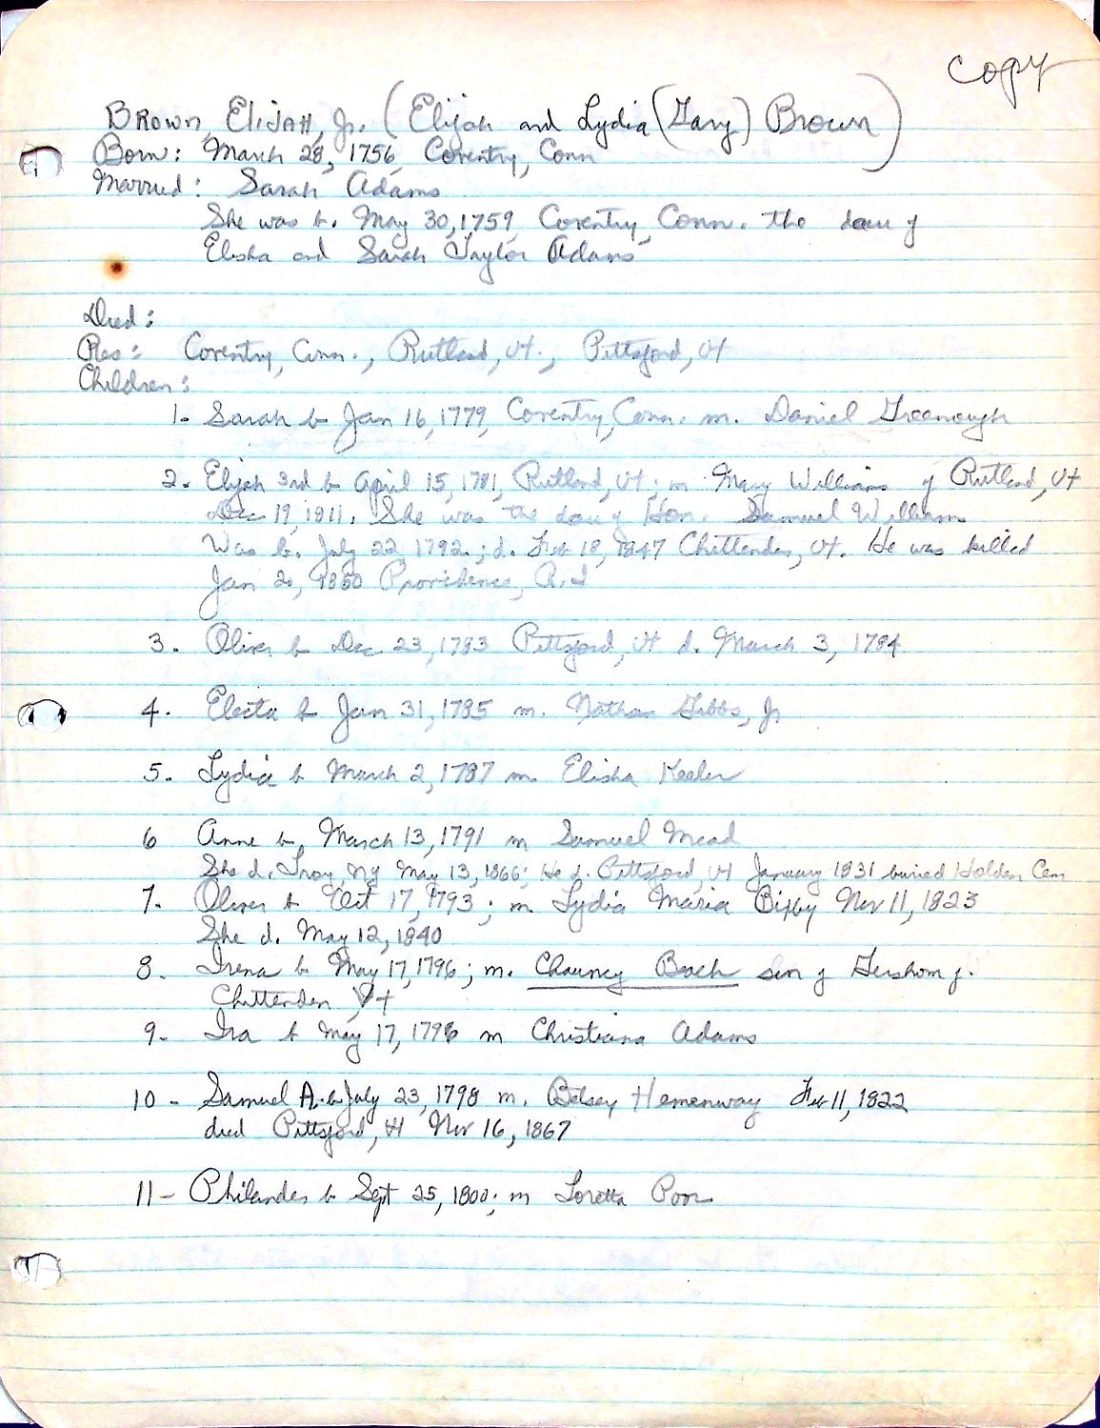 Copy
Brown, Elijah, Jr. (Elijah and Lydia (Gary) Brown)
Born: March 28, 1756, Coventry, Conn
Married: Sarah Adams
She was b. May 30, 1759, Coventry, Conn. the dau of
Elisha and Sarah Taylor Adams
Died:
Res: Coventry, Conn., Rutland, Vt., Pittsford, Vt
Children:
1- Sarah b Jan 16, 1779, Coventry, Conn. m. Daniel Greenough
2. Elijah 3rd b April 15, 1781, Rutland, Vt; m Mary Williams of Rutland, Vt
Dec 19, 1811. She was the dau of Hon. Samuel Williams
Was b. July 22, 1792; d. Feb 18, 1847 Chittenden, Vt. He was killed
Jan 20, 1850 Providence, R.I
3. Oliver b Dec 23, 1783 Pittsford, Vt d. March 3, 1784
4. Electa b Jan 31, 1785 m. Nathan Gibbs, Jr
5. Lydia b March 2, 1787 m Elisha Keeler
6 Anne b March 13, 1791 m Samuel Mead
She d. Troy, NY May 13, 1866; He d. Pittsford, Vt January 1831 buried Holden Cem
7. Oliver b Oct 17, 1793; m Lydia Maria Bixby Nov 11, 1823
She d. May 12, 1840
8. Irena b May 17, 1796; m. Chauncy Bach son of Gershom of.
Chittenden, Vt
9. Ira b May 17, 1796 m Christiana Adams
10 - Samuel A. b July 23, 1798 m. Betsey Hemenway Feb 11, 1822
died Pittsford, Vt Nov 16, 1867
11 - Philander b Sept 25, 1800; m Loretta Poor